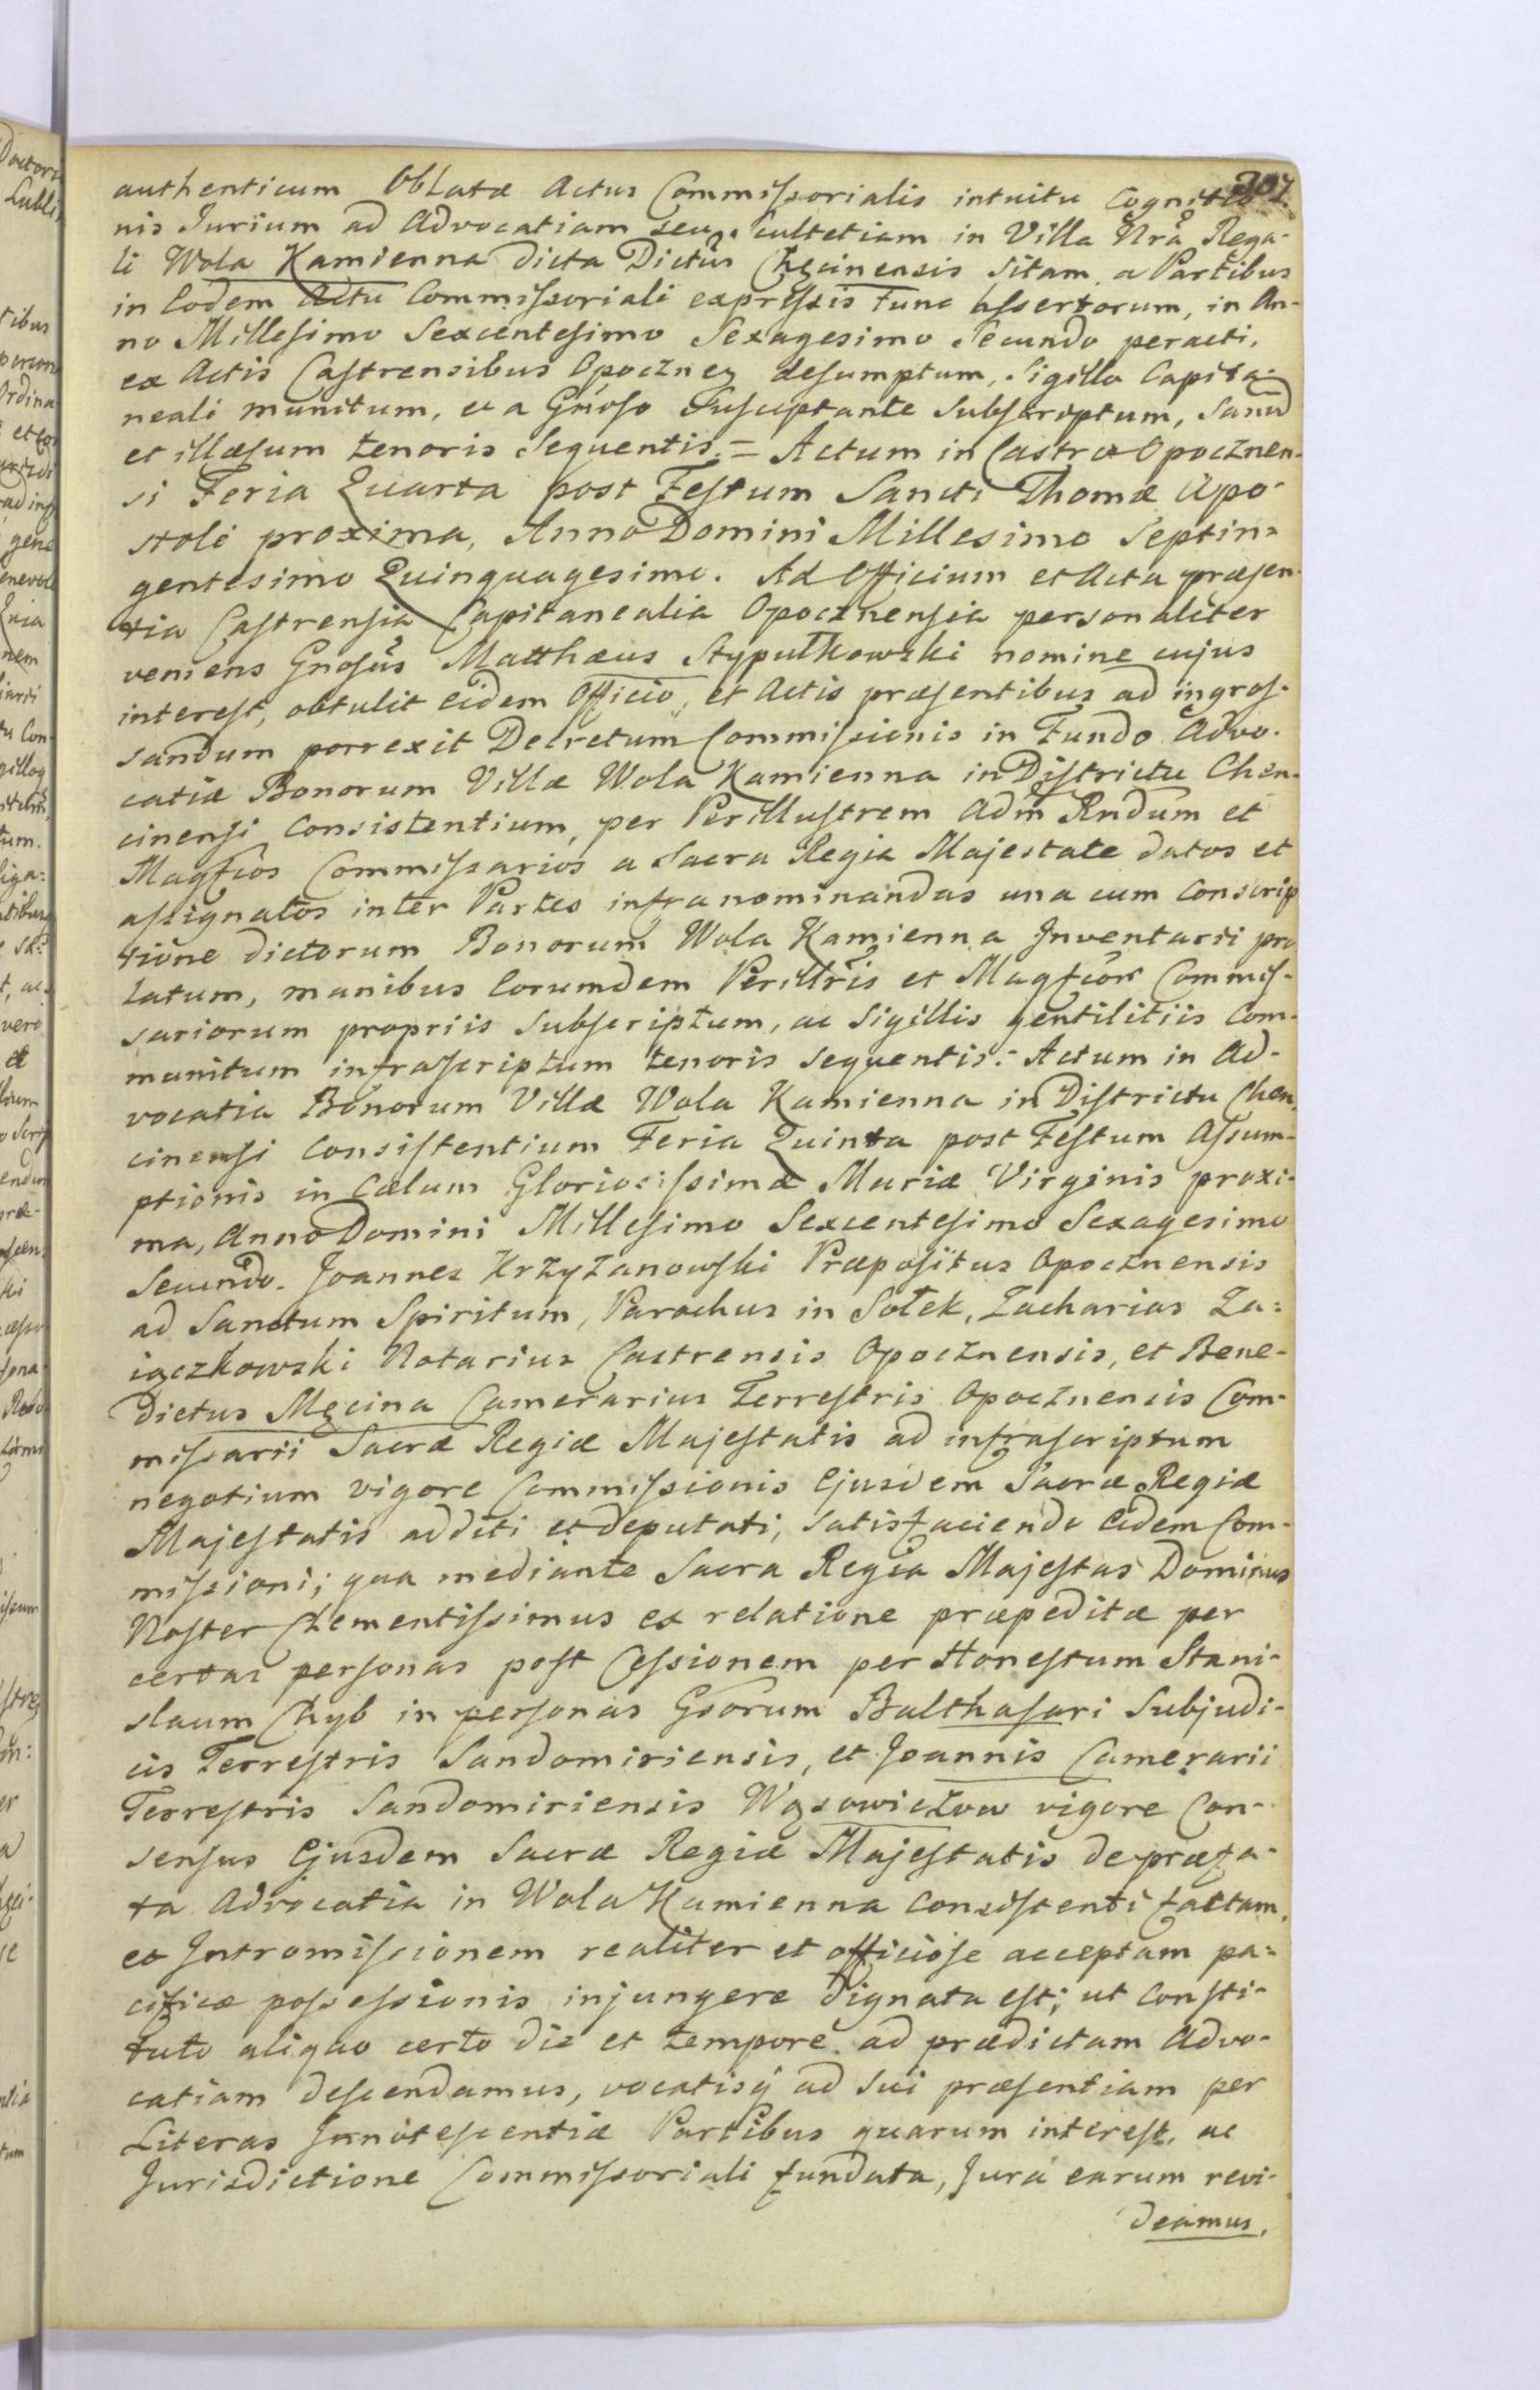 307
authenticum Oblatæ Actus Commissorialis intuitu Cognitio-
nis Jurium ad Advocatiam seu Scultetiam in Villa Nrâ Rega-
li Wola Kamienna dicta Dictûs Chęcinensis sitam, a Partibus
in Eodem Actu Commissoriali expressis tunc assertorum, in An-
no Millesimo Sexcentesimo Sexagesimo Secundo peracti,
ex Actis Castrensibus Opoczney desumptum, Sigillo Capita-
neali munitum, et a Gnoso Susceptante Subscriptum, Sanũ
et illæsum tenoris Sequentis = Actum in Castro Opocznen-
si Feria Quarta post Festum Sancti Thomæ Apo-
stoli proxima, Anno Domini Millesimo Septin-
gentesimo Quinquagesimo. Ad Officium et Acta præsen-
tia Castrensia Capitanealia Opocznensia personaliter
veniens Gnosûs Matthæus Stypułkowski nomine cujus
interest, obtulit eidem Officio, et Actis præsentibus ad ingros-
sandum porrexit Decretum Commissionis in Fundo Advo-
catiæ Bonorum Villæ Wola Kamienna in Districtu Chen-
cinensi Consistentium, per Perillustrem Adm̃ Rndum et
Magfcos Commissarios a Sacra Regia Majestate datos et
assignatos inter Partes infra nominandas una cum Conscrip
tione dictorum Bonorum Wola Kamienna Inventarii pro
latum, manibus Eorumdem Perillris et Magfcor Commis-
sariorum propriis Subscriptum, ac Sigillis gentilitiis Com-
munitum infrascriptum tenoris sequentis:- Actum in Ad-
vocatia Bonorum Villæ Wola Kamienna in Districtu Chen,
cinensi Consistentium Feria Quinta post Festum Assum-
ptionis in Cælum Gloriosissimæ Mariæ Virginis proxi-
ma, Anno Domini Millesimo Sexcentesimo Sexagesimo
Secundo. Joannes Krzyzanowski Præpositus Opocznensis
ad Sanctum Spiritum, Parochus in Sołek, Zacharias Za:
iączkowski Notarius Castrensis Opocznensis, et Bene-
dictus Męcina Camerarius Terrestris Opocznensis Com-
missarii Sacræ Regiæ Majestatis ad infrascriptum
negotium vigore Commissionis Ejusdem Sacræ Regiæ
Majestatis additi et deputati, satisfaciendo Eidem Com-
missioni; qua mediante Sacra Regia Majestas Dominus
Noster Clementissimus ex relatione præpeditæ per
certas personas post Cessionem per Honestum Stani-
slaum Chyb in personas Gsorum Balthasari Subjudi-
cis Terrestris Sandomiriensis, et Joannis Camerarii
Terrestris Sandomiriensis Wąsowiczow vigore Con-
sensus Ejusdem Sacræ Regiæ Majestatis de præfa-
ta Advocatia in Wola Kamienna Consistenti factam,
et Intromissionem realiter et officiose acceptam pa:
cificæ possessionis injungere dignata est; ut Consti-
tuto aliquo certo die et tempore ad prædictam Advo-
catiam descendamus, vocatisq̃ ad sui præsentiam per
Literas Innotescentiæ Partibus quarum interest, ac
Jurisdictione Commissoriali fundata, Jura earum revi-
deamus,